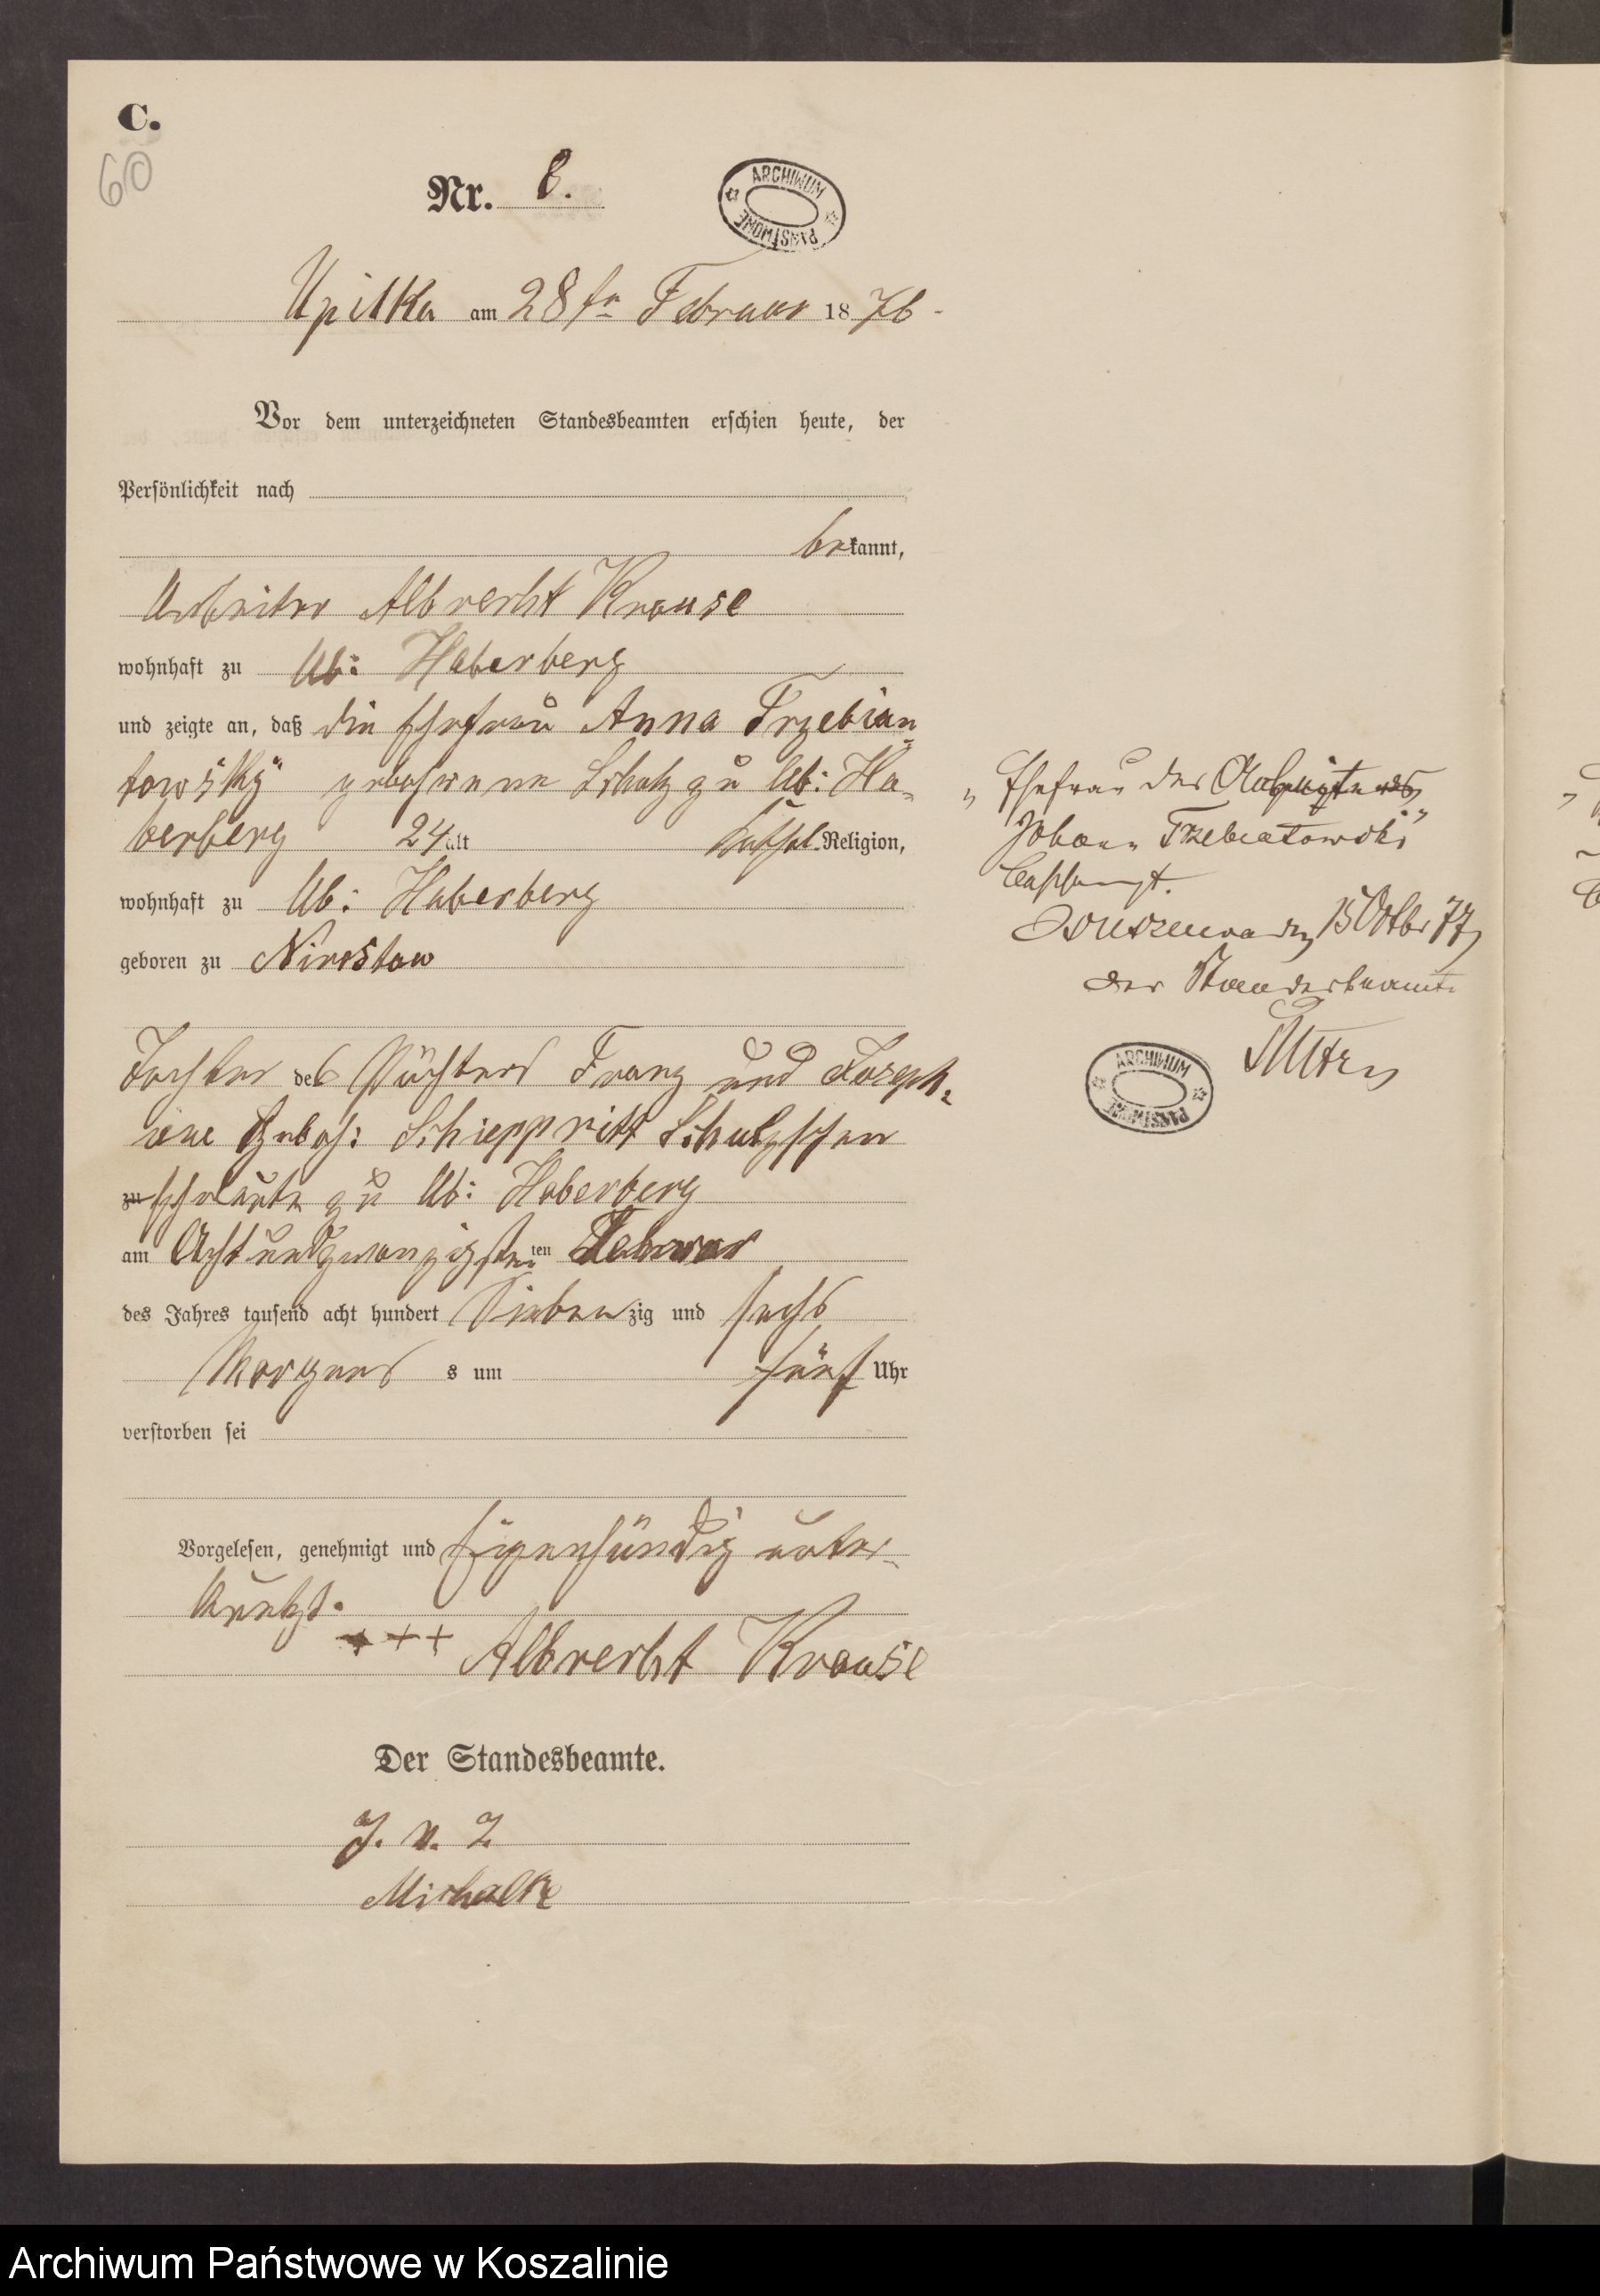 C.
60
Nr. 8.
ARCHIWUM PAŃSTWOWE
Upilka am 28 ten Februar 1876.
Vor dem unterzeichneten Standesbeamten erschien heute, der
Persönlichkeit nach
bekannt,
Arbeiter Albrecht Krause
wohnhaft zu Ab: Haberberg
und zeigte an, daß die Ehefrau Anna Trzebian-
towsky gebohrene Schulz zu Ab: Ha-
berberg 24 alt kathol. Religion,
wohnhaft zu Ab: Haberberg
geboren zu
Tochter des Pächters Franz und Joseph-
ine Geboh: Schulzschen
zu Eheleute zu Ab: Haberberg
am Achtundzwanzigsten ten Februar
des Jahres tausend acht hundert Siebenzig und sechs
Morgens s um fünf Uhr
verstorben sei
Vorgelesen, genehmigt und Eigenhändig unter-
kreuzt.
+++ Albrecht Krause
Der Standesbeamte.
J. V.
Michalke
„Ehefrau des
Johann Trzebiatowski"
15 Octbr 77
Der Standesbeamte
ARCHIWUM PAŃSTWOWE
Archiwum Państwowe w Koszalinie